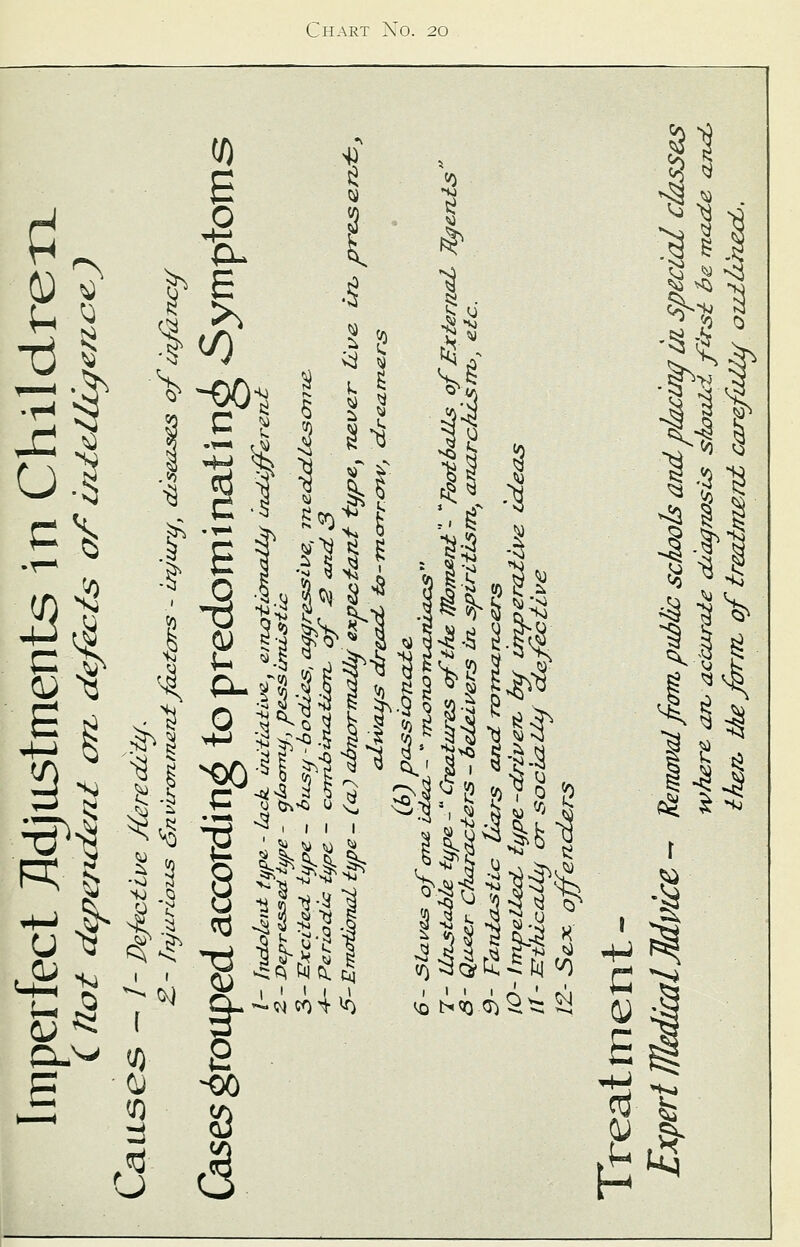 Chart No. 20
Imperfect Adjustments in Children
(Not dependent on defects of intelligence)
Causes - 1- Defective Heredity.
2- Injurious Environment factors - injury, diseases of infancy
Cases grouped according to predominating Symptoms
1- Indolent type - lack initiative, emotionally indifferent
2- Depressed type - gloomy, pessimistic
3- Excited type - busy-bodies, aggressive, meddlesome
4- Periodic type - combination of 2 and 3
5- Emotional type - (a) abnormally expectant type, never live in present,
always dread to-morrow, dreamers
(b) passionate
6- Slaves of one idea - "monomaniacs"
7- Unstable type - "Creatures of the Moment" - "Footballs of External Agents"
8- Queer Characters - beleivers in spiritism, anarchism, etc.
9- Fantastic liars and romancers
10- Impelled type - driven by imperative ideas
11- Ethically or socially defective
12- Sex offenders
Treatment -
Expert Medical Advice - Removal from public schools and placing in special classes
where an accurate diagnosis should first be made and
then the form of treatment carefully outlined.